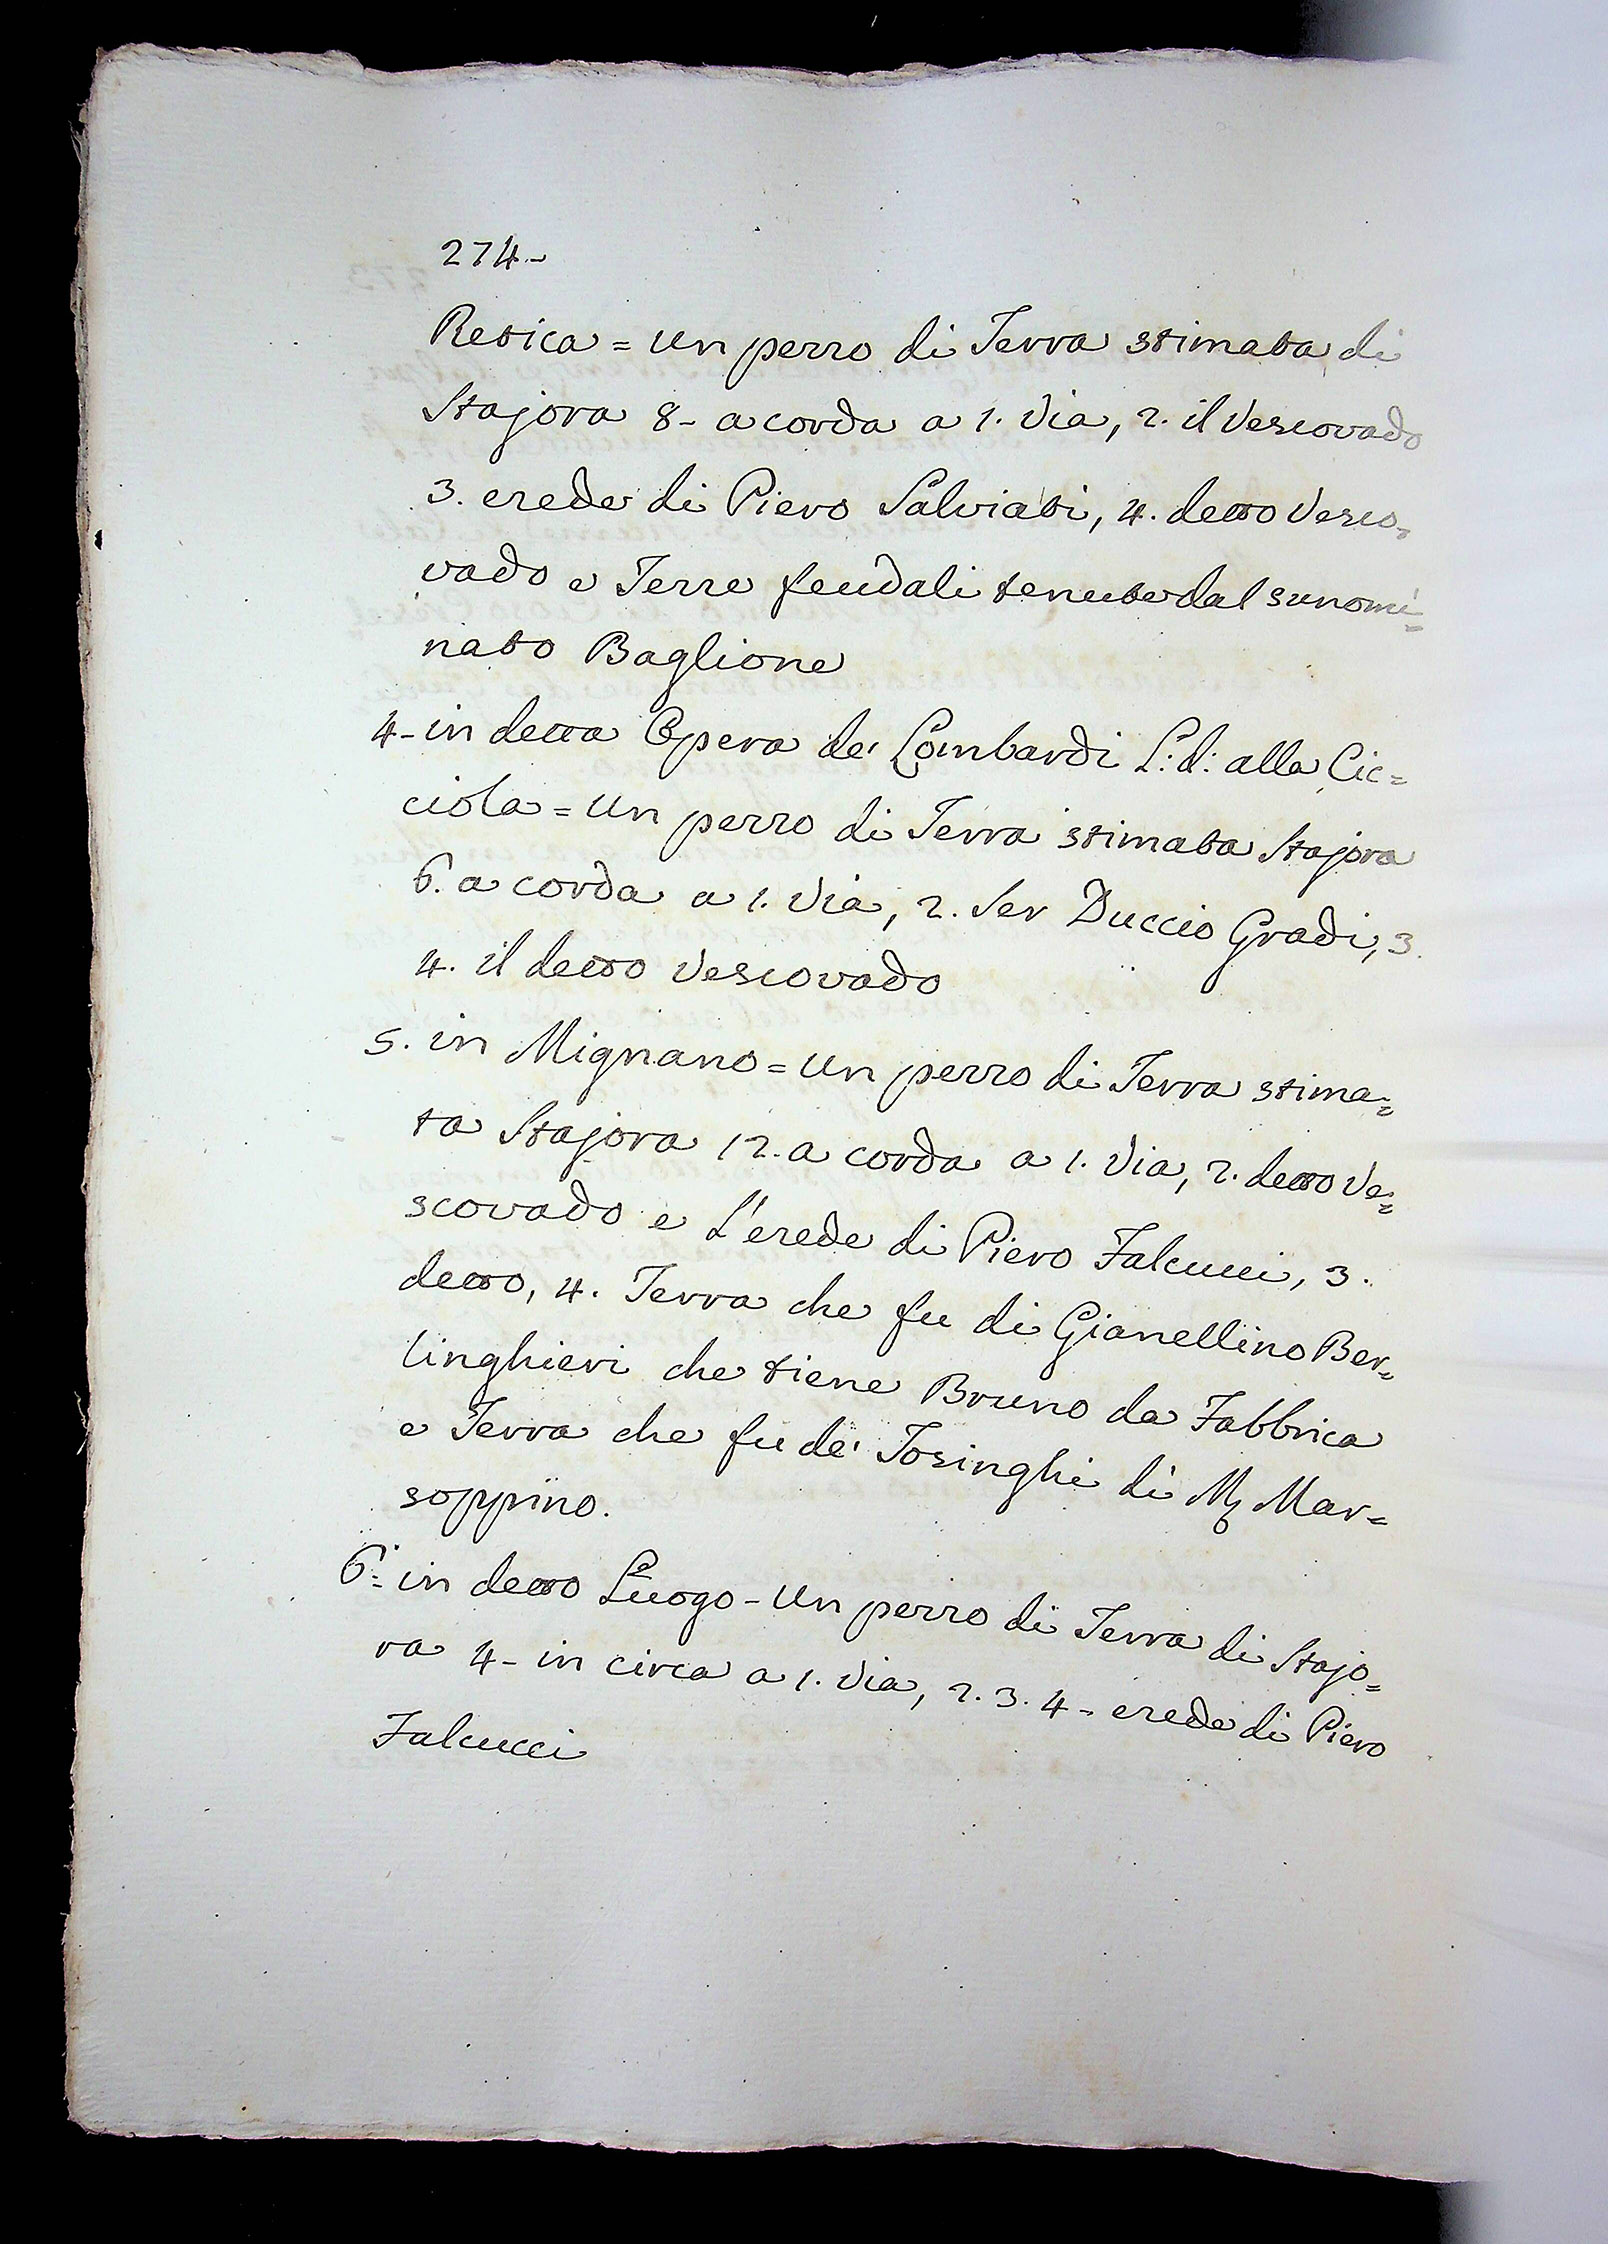 274-
Retica = un pezzo di Terra stimata di
Stajora 8- a corda a 1. Via, 2. il Vescovado
3. erede di Piero Salviati, 4. detto Vesco-
vado e Terre feudali tenute dal sunomi=
nato Baglione
4- in detta Opera de' Lombardi L: d: alla Cic=
ciola = un pezzo di Terra stimata Stajora
6. a corda a 1. Via, 2. Ser Duccio Gradi, 3.
4. il detto Vescovado
5. in Mignano = un pezzo di Terra stima=
ta Stajora 12. a corda a 1. Via, 2. detto Ve=
scovado e L'erede di Piero Falcucci, 3.
detto, 4. Terra che fu di Gianellino Ber=
linghieri che tiene Bruno da Fabbrica
e Terra che fu de' Tosinghi di M. Mar=
soppino.
6: in detto Luogo - un pezzo di Terra di Stajo=
ra 4- in circa a 1. Via, 2. 3. 4- erede di Piero
Falcucci